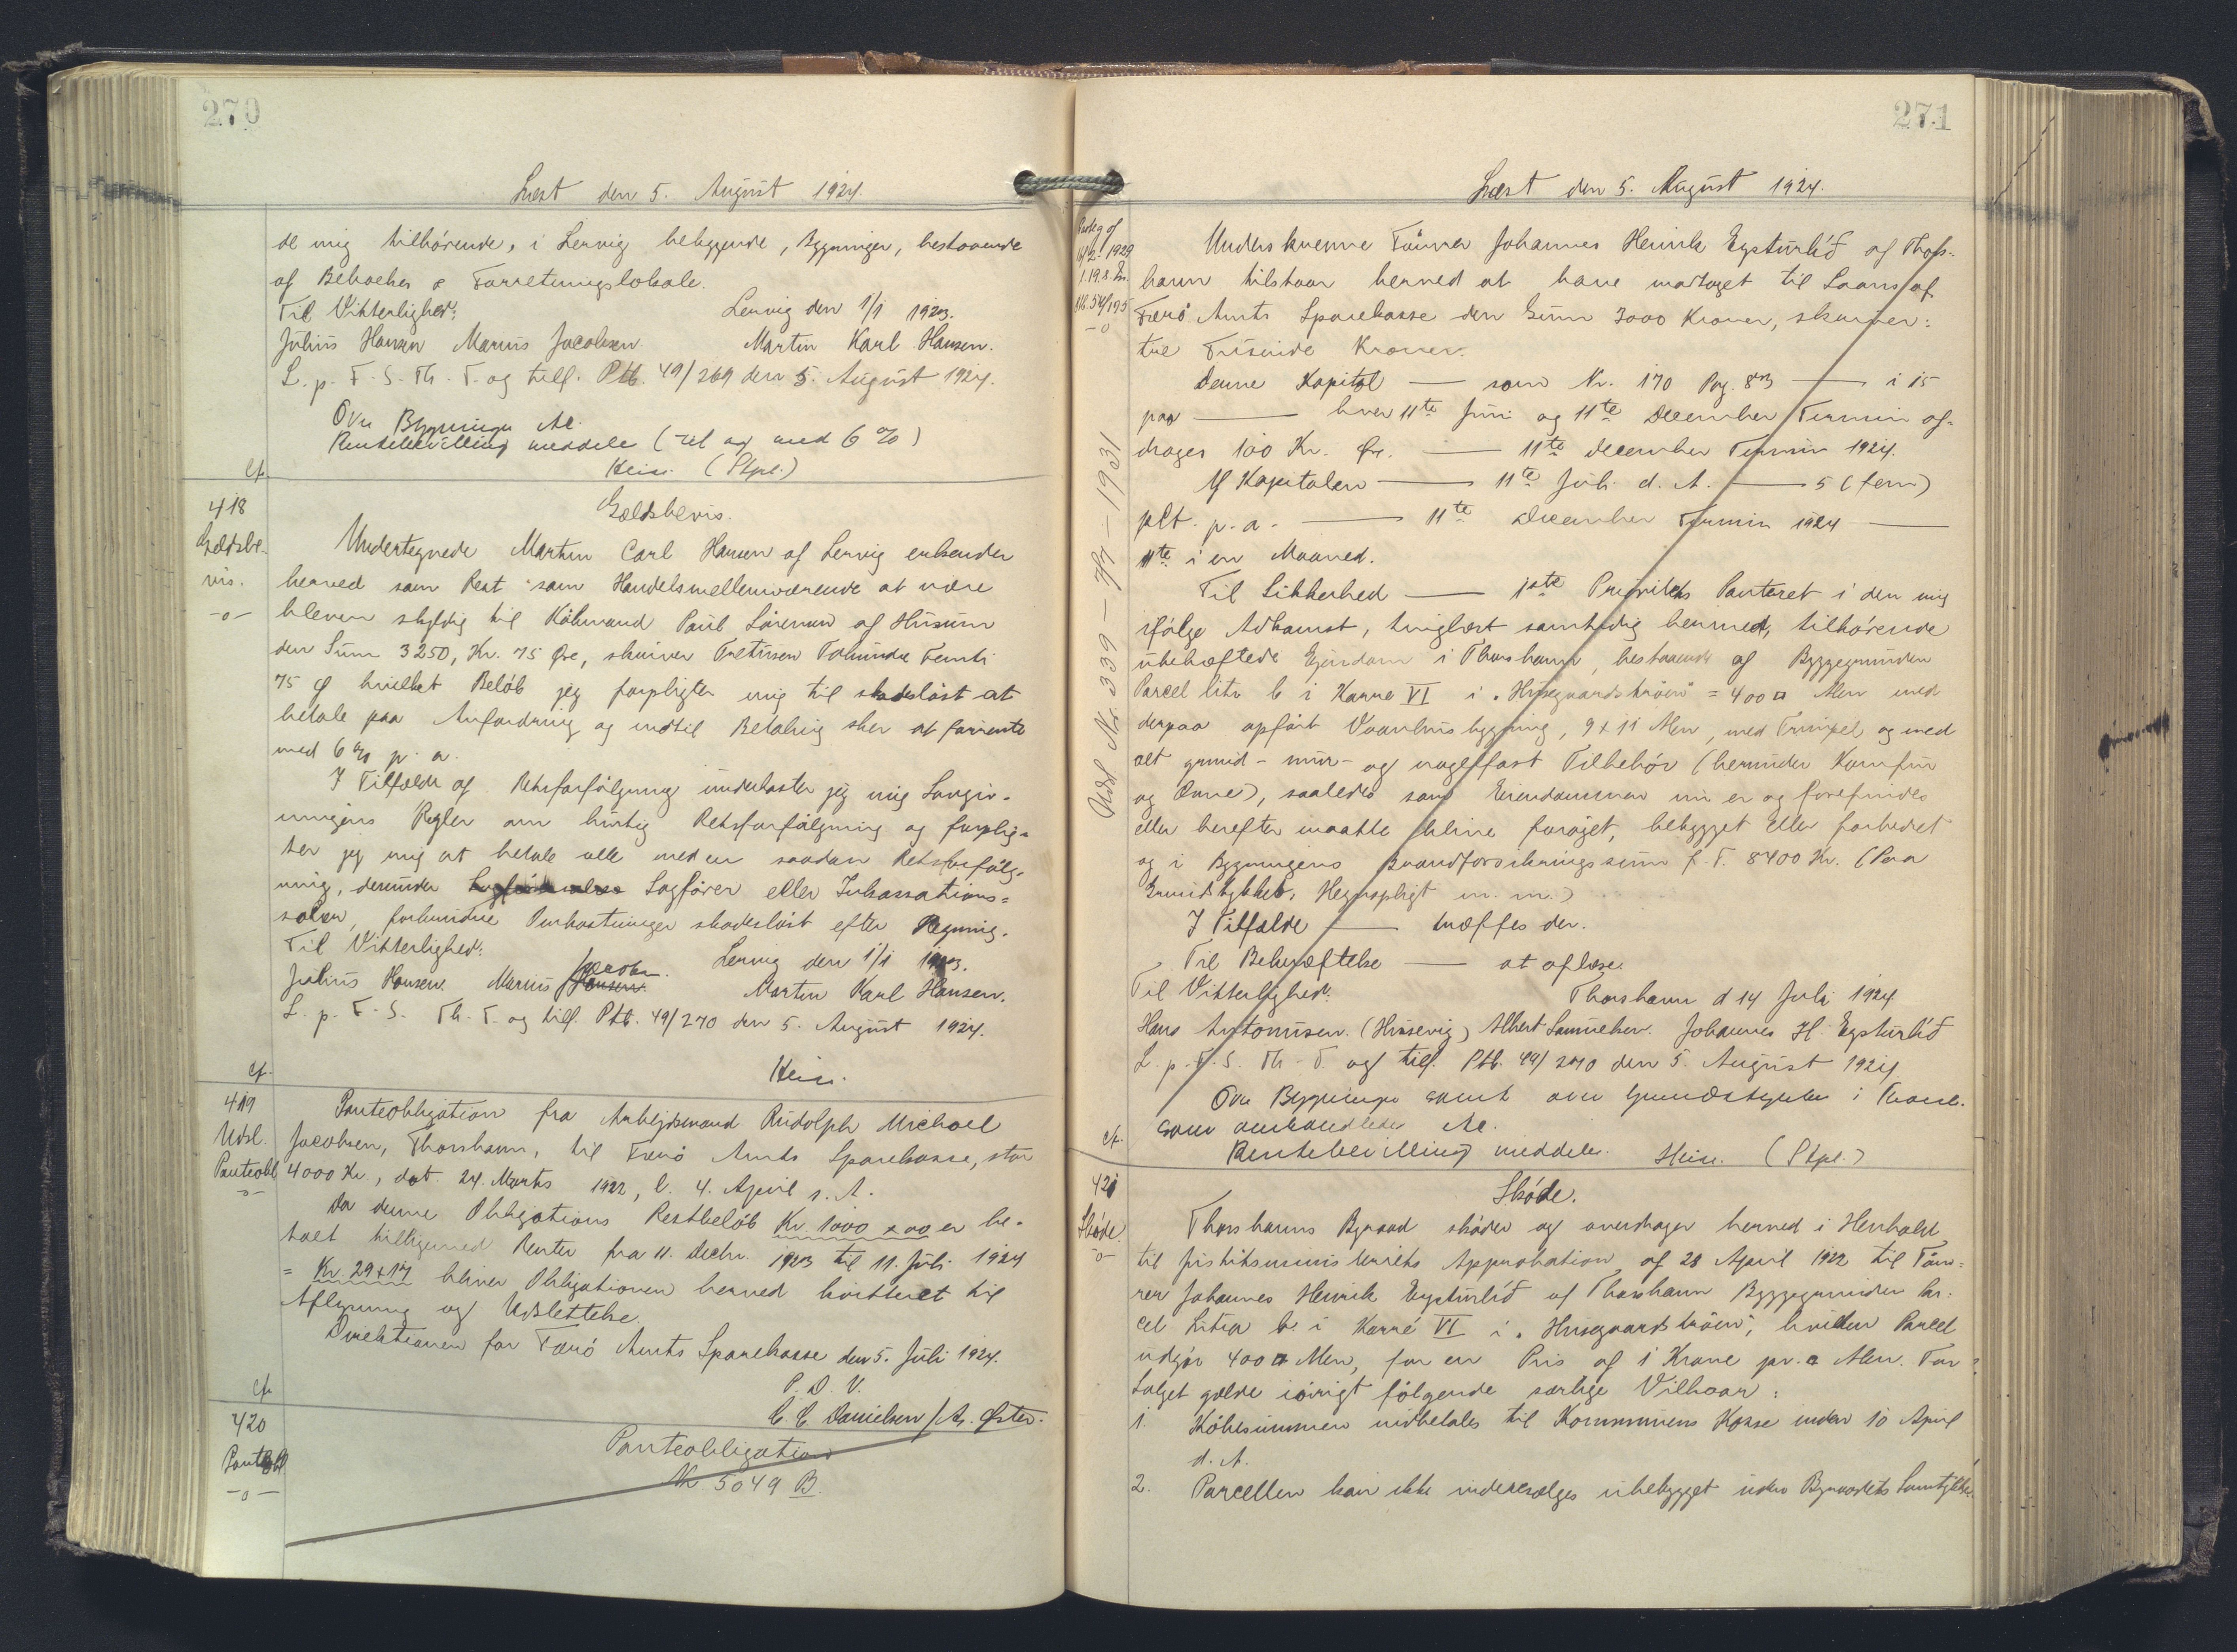 270
Læst den 5. August 1924.
de mig tilhørende, i Lervig beliggende, Bygninger, bestaaende
af Beboelses & Forretningslokale.
Til Vitterlighed: Lervig den 1/1 1923.
Julius Hansen Marius Jacobsen Martin Karl Hansen.
L. p. F. S. Th. T. og tilf. Ptb. 49/269 den 5. August 1924.
Over Bygningen Ae.
Rentebevilling meddele (til og med 6 %)
cf. (Stpl.)
418 Gældsbevis.
Gældsbe- Undertegnede Martin Carl Hansen af Lervig erkender
vis. herved som Rest som Handelsmellemværende at være
-o- bleven skyldig til Købmand Poul Sørensen af Husum
den Sum 3250, Kr. 75 Øre, skriver Tretusen Tohundre Femti
75 Ø hvilket Beløb jeg forpligter mig til skadesløst at
betale paa Anfordring og indtil Betaling sker at forrente
med 6 % p. a.
I Tilfælde af Retsforfølgning underkaster jeg mig Lovgiv-
ningens Regler om hurtig Retsforfølgning og forplig-
ter jeg mig at betale alle med en saadan Retsforfølg-
ning, derunder Sagfører eller Inkassations=
salær, forbundne Omkostninger skadesløst efter Regning.
Til Vitterlighed: Lervig den 1/1 1923.
Julius Hansen. Marius Jacobsen. Martin Karl Hansen.
L. p. F. S. Th. T. og tilf. Ptb. 49/270 den 5. August 1924.
cf.
419 Panteobligation fra Arbejdsmand Rudolph Michael
Udsl. Jacobsen, Thorshavn, til Færø Amts Sparekasse, stor
Panteobl 4000 Kr, dat. 24. Marts 1922, l. 4. April s. A.
-o- Da denne Obligations Restbeløb Kr. 1000 x 00 er be-
talt tilligemed Renter fra 11. Decbr. 1923 til 11. Juli 1924
= Kr. 29 x 17 bliver Obligationen herved kvitteret til
Aflysning og Udslettelse.
Direktionen for Færø Amts Sparekasse den 5. Juli 1924.
P. D. V.
cf. C. C. Danielsen / A. Øster.
420 Panteobligation
Panteobl K 5049 B.
-o-
271
Læst den 5. August 1924.
1929
-o-
Udsl Nr. 339 - 1931
Underskrevne Tømrer Johannes Henrik Eysturlíð af Thors-
havn tilstaar herved at have modtaget til Laans af
Færø Amts Sparekasse den Sum 3000 Kroner, skriver:
tre Tusinde Kroner.
Denne Kapital — som Nr. 170 Pag. 873 — i 15
paa — hver 11te Juni og 11te December Termin af-
drages 100 Kr. Ør. — 11te December Termin 1924.
Af Kapitalen — 11te Juli d. A. — 5 (fem)
pCt. p. a. — 11te December Termin 1924 —
11te i en Maaned.
Til Sikkerhed — 1ste Prioritets Panteret i den mig
ifølge Adkomst, tinglæst samtidig hermed, tilhørende
ubehæftede Ejendom i Thorshavn, bestaaende af Byggegrunden
Parcel litr. b i Karre VI i "Husegaardstrøen" = 400 □ Alen med
derpaa opført Vaaningsbygning, 9 x 11 Alen, med Trimpel og med
alt grund- mur- og nagelfast Tilbehør (herunder Komfur
og Ovne), saaledes som Ejendommen nu er og forefindes
eller herefter maatte blive forøget, bebygget eller forbedret
og i Bygningens Brandforsikringssum p. T. 8400 Kr. (Paa
Grundstykket, Hegnspligt m. m.)
I Tilfælde — træffes der.
Til Bekræftelse — at aflæse.
Til Vitterlighed: Thorshavn d 14 Juli 1924
Hans Antonisen. (Husevig) Albert Samuelsen. Johannes H. Eysturlíð
L. p. F. S. Th. T. og tilf. Ptb. 49/270 den 5. August 1924
Over Bygningen samt over Grundstykket i Thorsh.
cf. som omhandledes Ae.
Rentebevilling meddeles. (Stpl.)
421 Skøde.
Skøde. Thorshavns Byraad skøder og overdrager herved i Henhold
-o- til Justitsministeriets Approbation af 28 April 1922 til Tøm-
rer Johannes Henrik Eysturlíð af Thorshavn Byggegrunden Par-
cel Litra b. i Karré VI i "Husegaardstrøen", hvilken Parcel
udgør 400 □ Alen, for en Pris af 1 Krone pr. □ Alen. For
Salget gælde iøvrigt følgende særlige Vilkaar:
1. Købesummen indbetales til Kommunens Kasse inden 10 April
d. A.
2. Parcellen kan ikke videresælges ubebygget uden Byraadets Samtykke